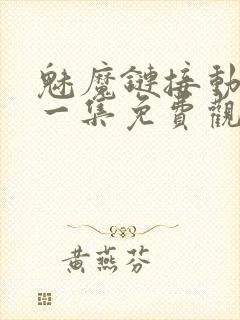 魅魔鏈接動
一集免費觀
黃燕芬